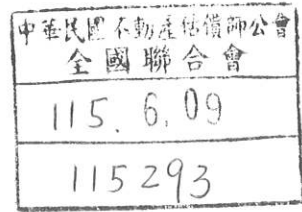 中華民國不動產估價師公會
全國聯合會
115. 6. 09
115293